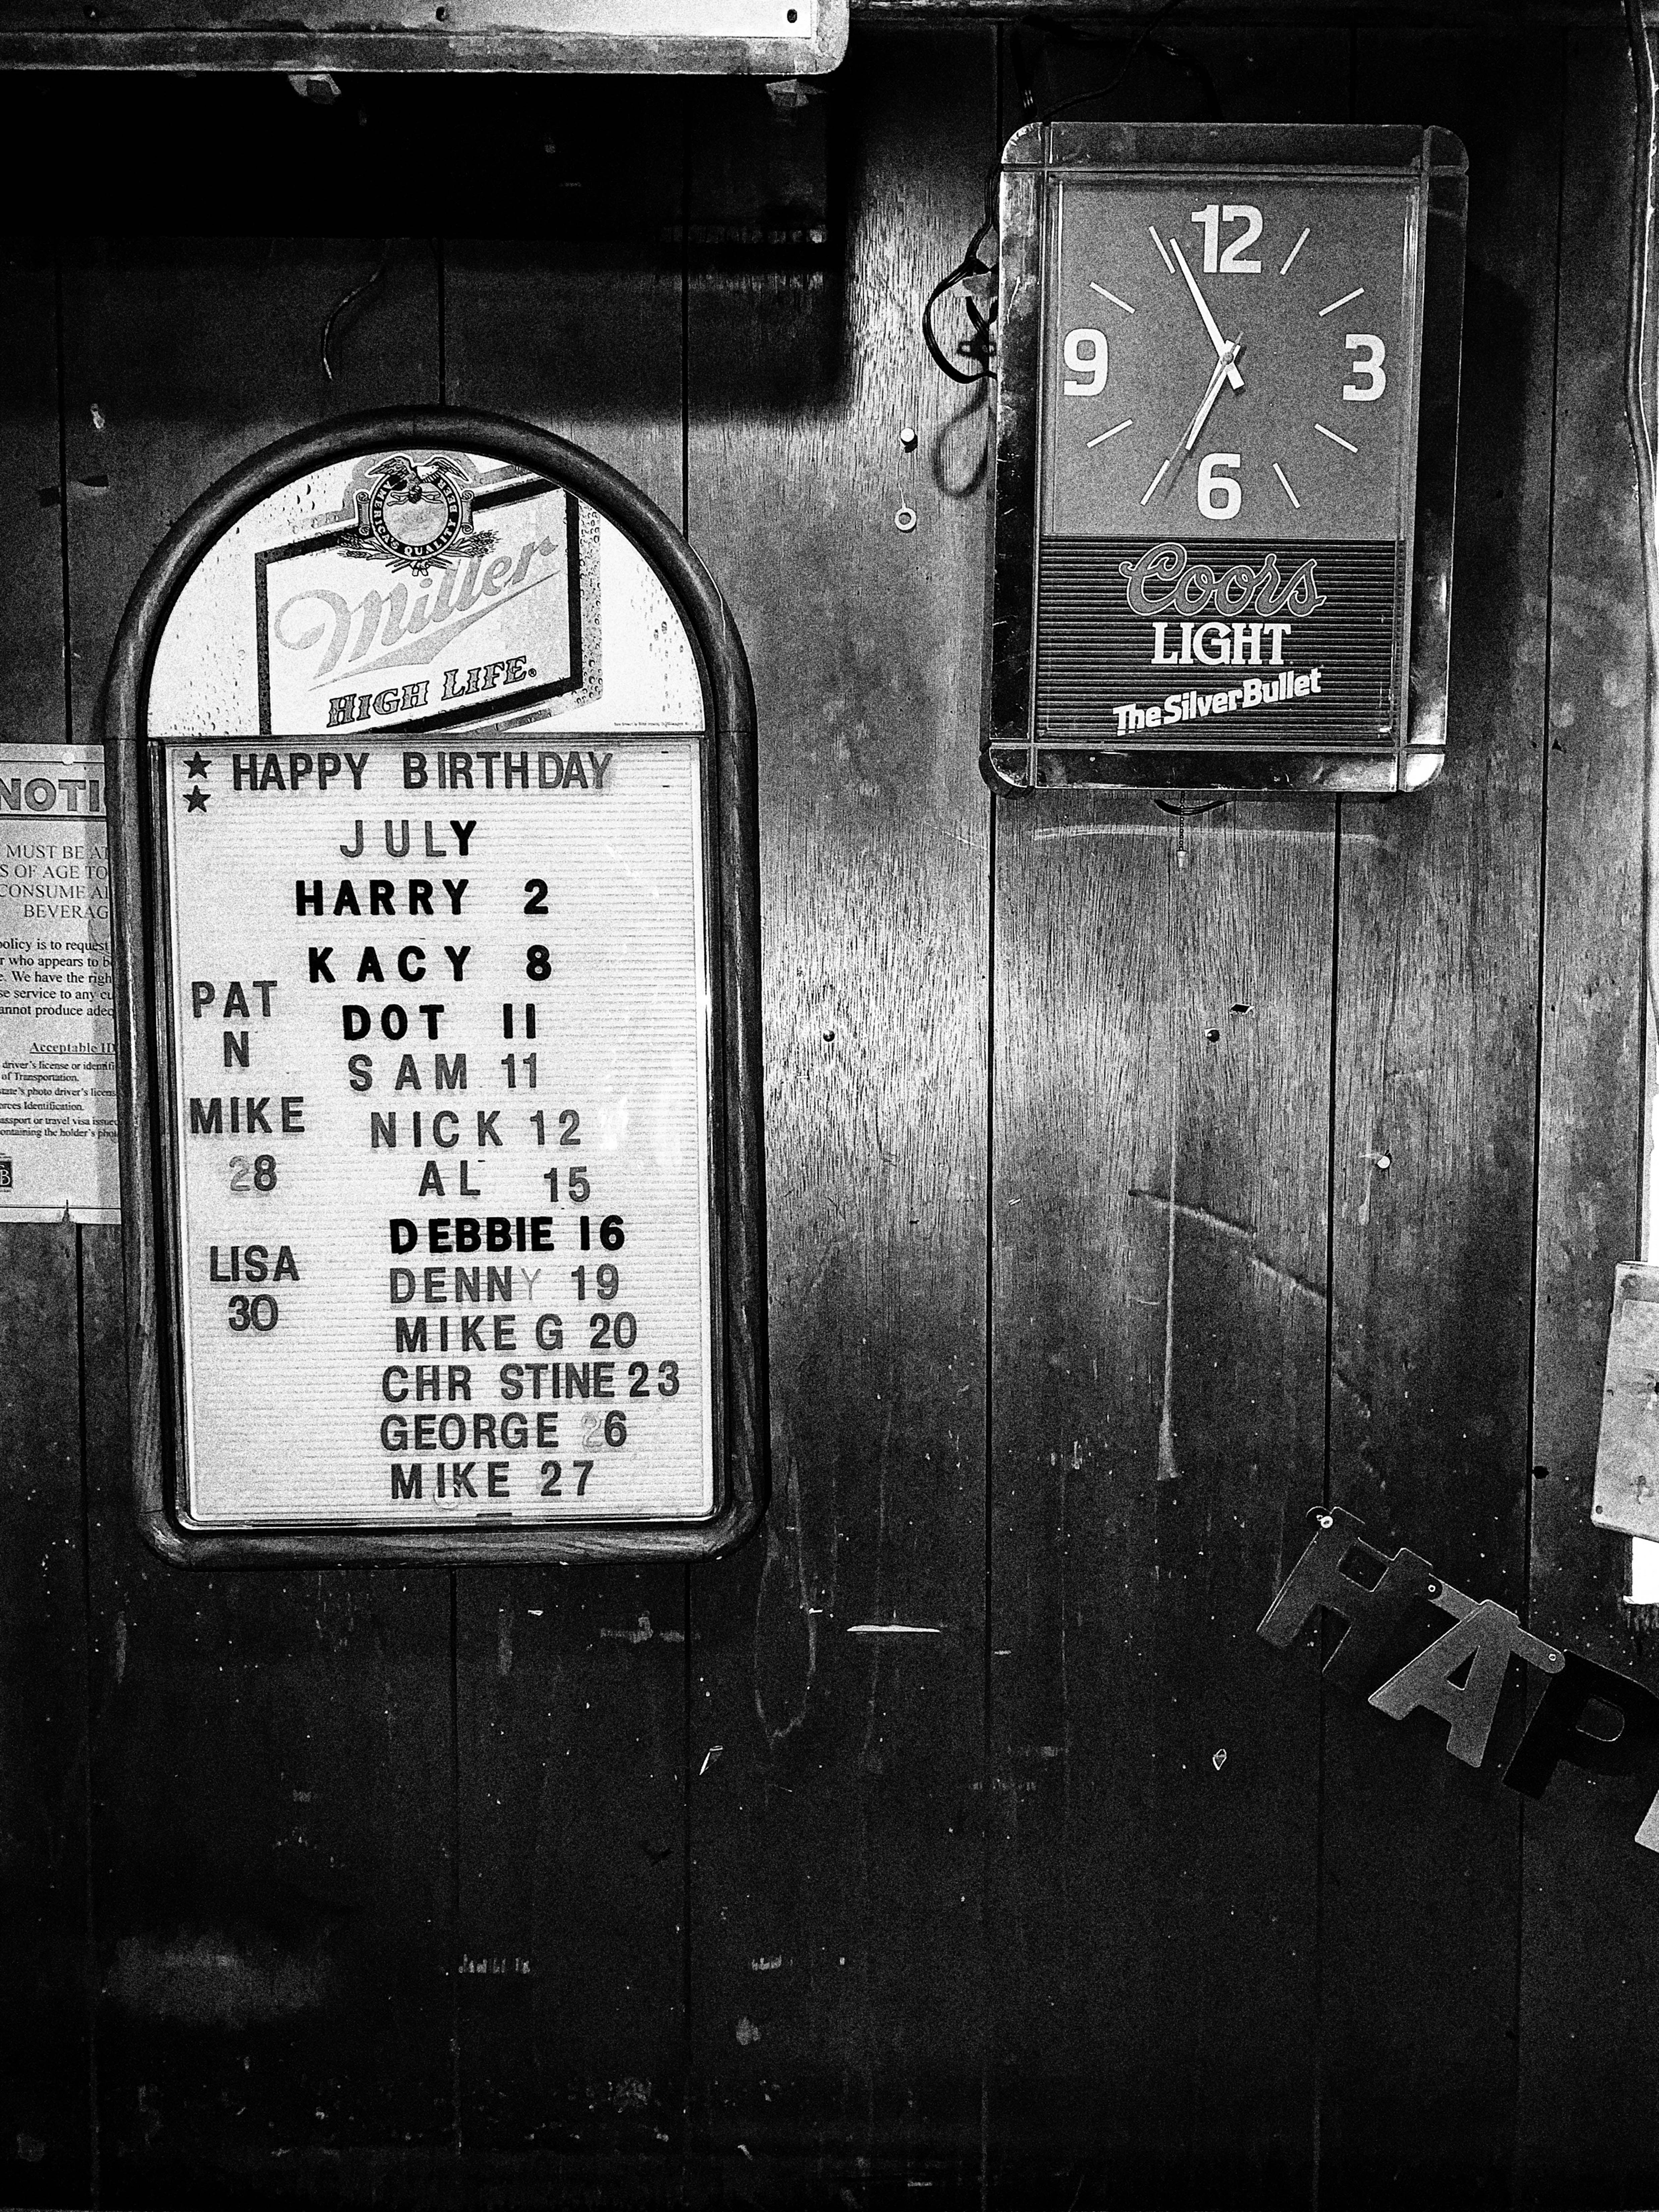 AMERICA'S QUALITY BEER
Miller
HIGH LIFE®
HAPPY BIRTHDAY
JULY
HARRY 2
KACY 8
DOT 11
SAM 11
NICK 12
AL 15
DEBBIE 16
DENNY 19
MIKE G 20
CHR STINE 23
GEORGE 26
MIKE 27
PAT
N
MIKE
28
LISA
30
12
3
6
9
Coors
LIGHT
The Silver Bullet
NOTI
MUST BE AT
S OF AGE TO
CONSUME AL
BEVERAG
policy is to request
r who appears to b
e. We have the righ
se service to any cu
annot produce adeq
Acceptable ID
driver's license or identifi
of Transportation.
state's photo driver's licens
orces Identification.
assport or travel visa issue
ontaining the holder's phot
HAP